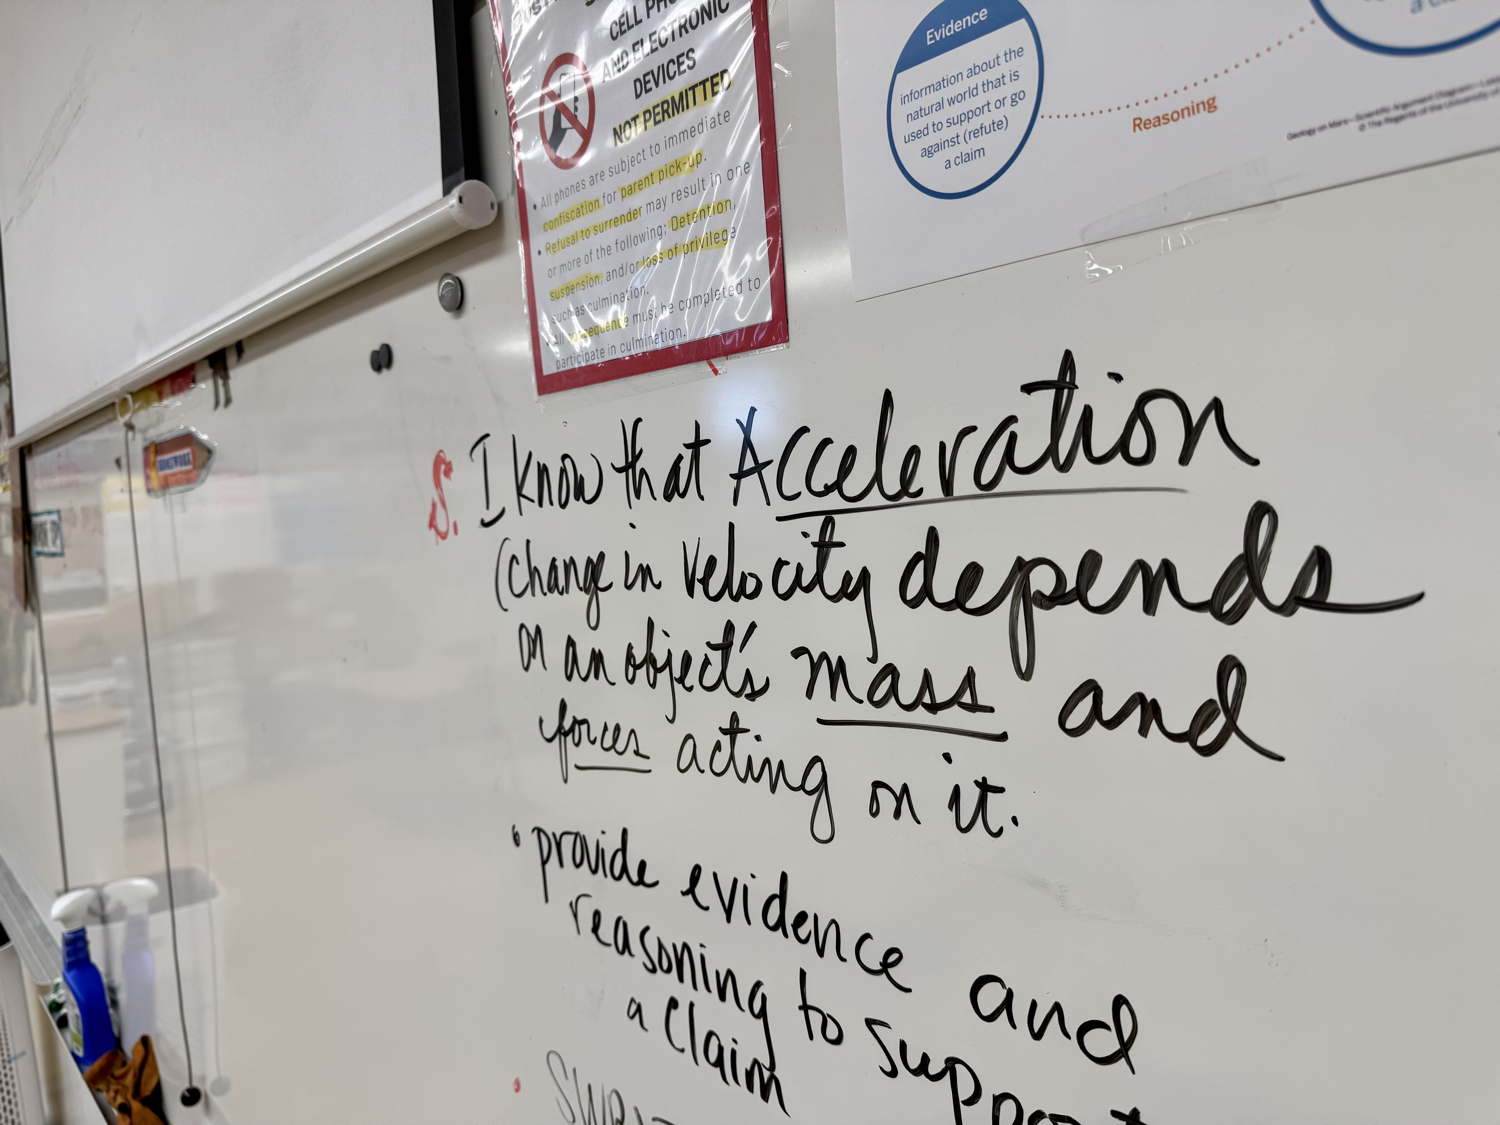 CELL
AND ELECTRONIC
DEVICES
NOT PERMITTED
• All phones are subject to immediate
confiscation for parent pick-up.
• Refusal to surrender may result in one
or more of the following: Detention,
suspension, and/or loss of privilege
such as culmination.
All consequence must be completed to
participate in culmination.
Evidence
information about the
natural world that is
used to support or go
against (refute)
a claim
Reasoning
Geology on Mars—Scientific Argument Diagram
© The Regents of the University of
HOMEWORK
S. I know that Acceleration
(change in velocity depends
on an object's mass and
forces acting on it.
• provide evidence and
reasoning to support
a Claim